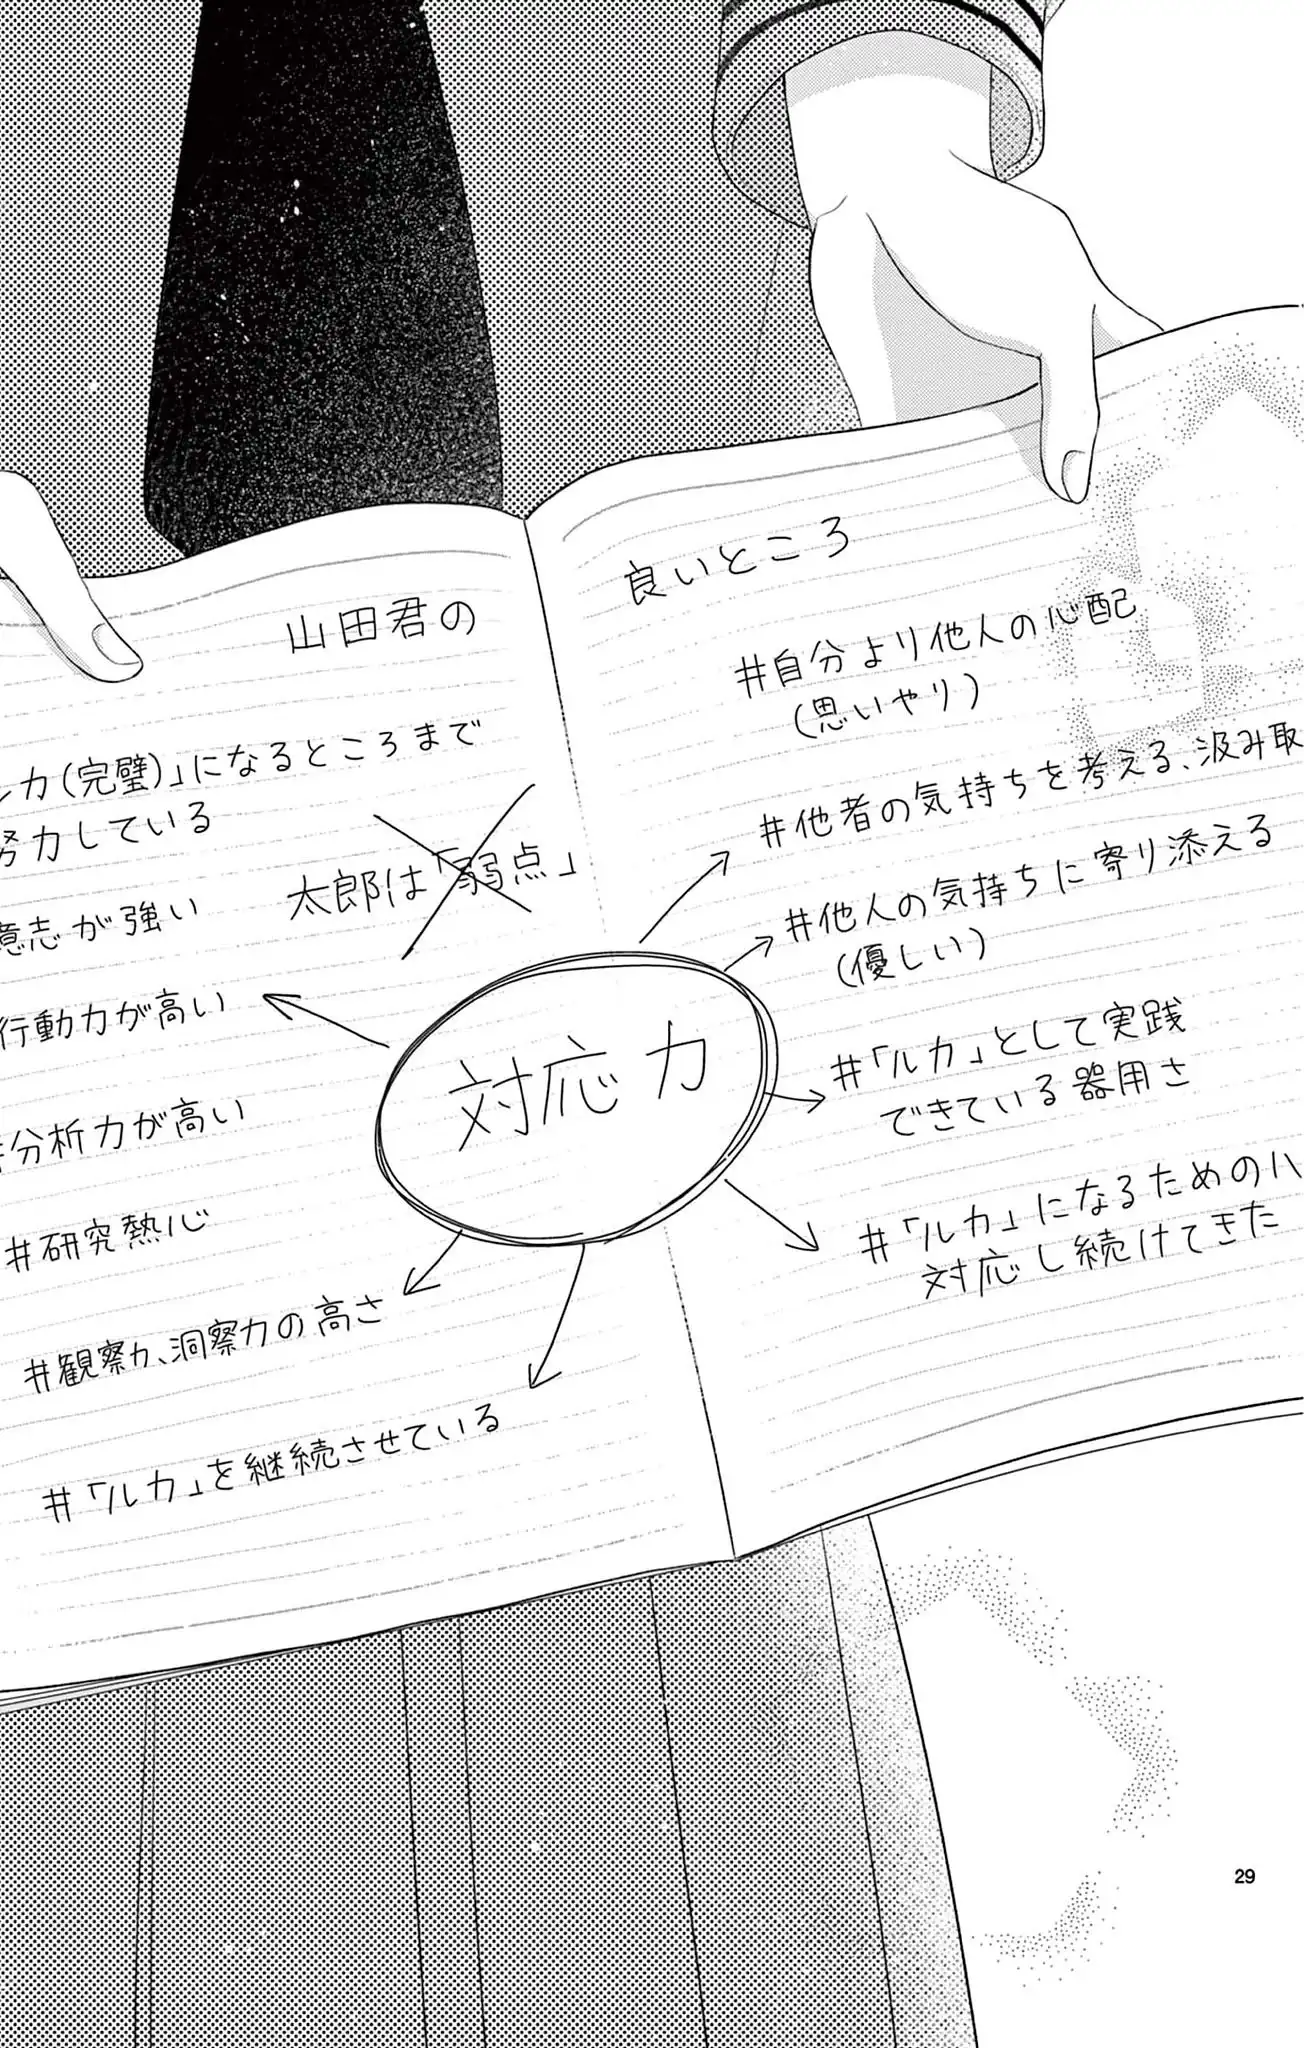 山田君の
良いところ
ルカ(完璧)」になるところまで
努力している
意志が強い
太郎は「弱点」
行動力が高い
#分析力が高い
#研究熱心
#観察力、洞察力の高さ
#「ルカ」を継続させている
対応力
#自分より他人の心配
(思いやり)
#他者の気持ちを考える、汲み取
#他人の気持ちに寄り添える
(優しい)
#「ルカ」として実践
できている器用さ
#「ルカ」になるためのハ
対応し続けてきた
29